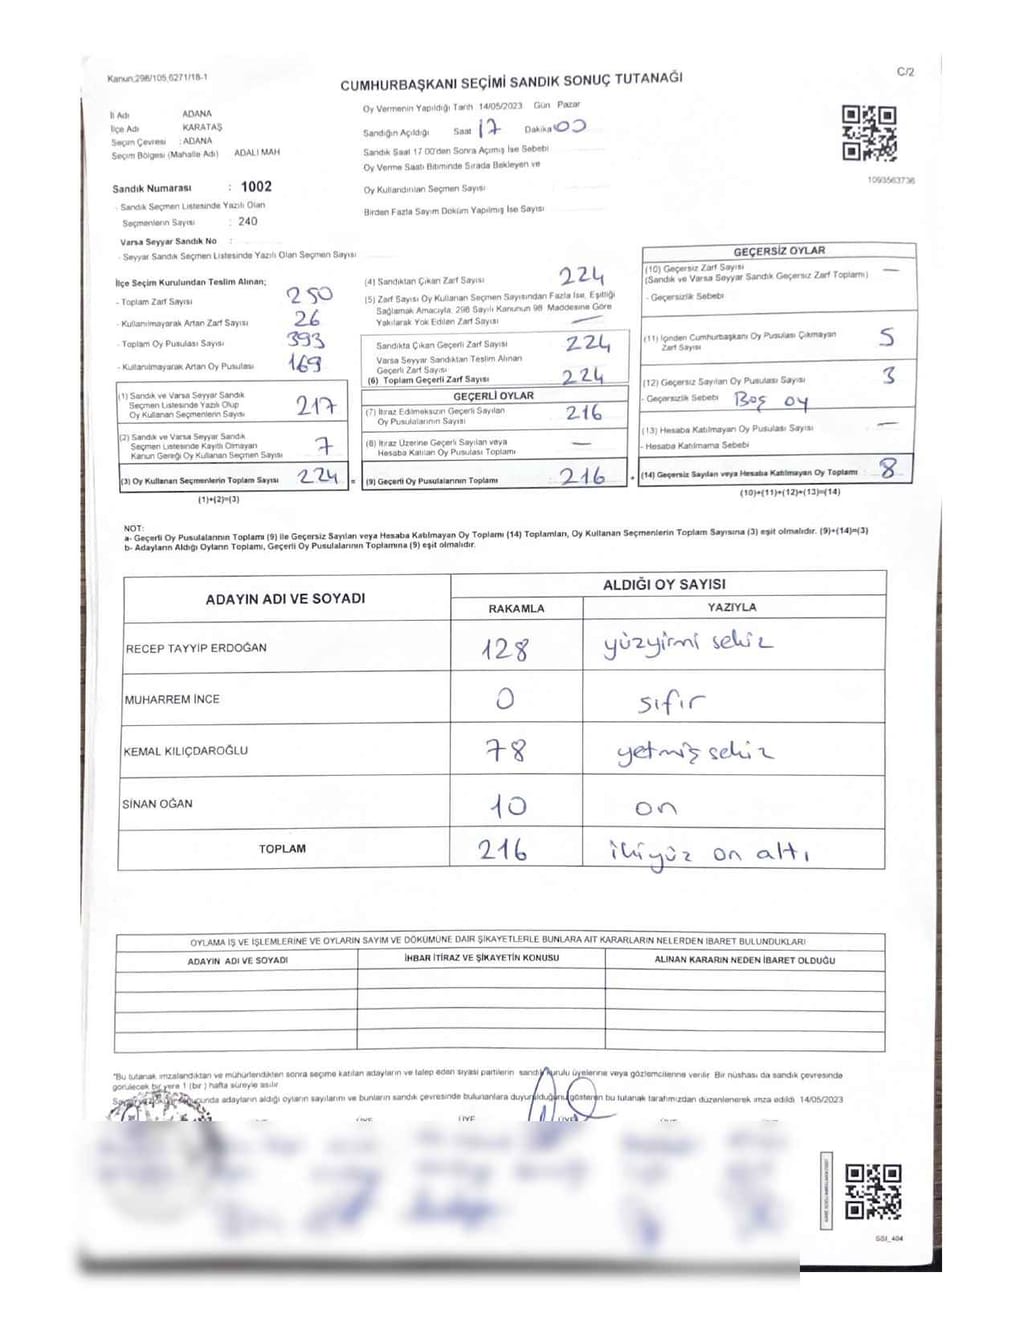 Kanun;298/105,6271/18-1
C/2
CUMHURBAŞKANI SEÇİMİ SANDIK SONUÇ TUTANAĞI
İl Adı ADANA
İlçe Adı KARATAŞ
Seçim Çevresi : ADANA
Seçim Bölgesi (Mahalle Adı) ADALI MAH
Sandık Numarası : 1002
- Sandık Seçmen Listesinde Yazılı Olan
Seçmenlerin Sayısı : 240
Varsa Seyyar Sandık No :
- Seyyar Sandık Seçmen Listesinde Yazılı Olan Seçmen Sayısı
Oy Vermenin Yapıldığı Tarih 14/05/2023 Gün Pazar
Sandığın Açıldığı Saat 17 Dakika 00
Sandık Saat 17:00'den Sonra Açımış İse Sebebi
Oy Verme Saati Bitiminde Sırada Bekleyen ve
Oy Kullandırılan Seçmen Sayısı
Birden Fazla Sayım Döküm Yapılmış İse Sayısı
1093563736
İlçe Seçim Kurulundan Teslim Alınan;
- Toplam Zarf Sayısı 250
- Kullanılmayarak Artan Zarf Sayısı 26
- Toplam Oy Pusulası Sayısı 393
- Kullanılmayarak Artan Oy Pusulası 169
(1) Sandık ve Varsa Seyyar Sandık
Seçmen Listesinde Yazılı Olup
Oy Kullanan Seçmenlerin Sayısı 217
(2) Sandık ve Varsa Seyyar Sandık
Seçmen Listesinde Kayıtlı Olmayan
Kanun Gereği Oy Kullanan Seçmen Sayısı 7
(3) Oy Kullanan Seçmenlerin Toplam Sayısı 224 =
(1)+(2)=(3)
(4) Sandıktan Çıkan Zarf Sayısı 224
(5) Zarf Sayısı Oy Kullanan Seçmen Sayısından Fazla İse, Eşitliği
Sağlamak Amacıyla, 298 Sayılı Kanunun 98 Maddesine Göre
Yakılarak Yok Edilen Zarf Sayısı —
Sandıkta Çıkan Geçerli Zarf Sayısı 224
Varsa Seyyar Sandıktan Teslim Alınan
Geçerli Zarf Sayısı
(6) Toplam Geçerli Zarf Sayısı 224
GEÇERLİ OYLAR
(7) İtiraz Edilmeksizin Geçerli Sayılan
Oy Pusulalarının Sayısı 216
(8) İtiraz Üzerine Geçerli Sayılan veya
Hesaba Katılan Oy Pusulası Toplamı —
(9) Geçerli Oy Pusulalarının Toplamı 216 +
GEÇERSİZ OYLAR
(10) Geçersiz Zarf Sayısı —
(Sandık ve Varsa Seyyar Sandık Geçersiz Zarf Toplamı)
- Geçersizlik Sebebi
(11) İçinden Cumhurbaşkanı Oy Pusulası Çıkmayan
Zarf Sayısı 5
(12) Geçersiz Sayılan Oy Pusulası Sayısı 3
- Geçersizlik Sebebi Boş oy
(13) Hesaba Katılmayan Oy Pusulası Sayısı —
- Hesaba Katılmama Sebebi
(14) Geçersiz Sayılan veya Hesaba Katılmayan Oy Toplamı 8
(10)+(11)+(12)+(13)=(14)
NOT:
a- Geçerli Oy Pusulalarının Toplamı (9) ile Geçersiz Sayılan veya Hesaba Katılmayan Oy Toplamı (14) Toplamları, Oy Kullanan Seçmenlerin Toplam Sayısına (3) eşit olmalıdır. (9)+(14)=(3)
b- Adayların Aldığı Oyların Toplamı, Geçerli Oy Pusulalarının Toplamına (9) eşit olmalıdır.
ADAYIN ADI VE SOYADI
ALDIĞI OY SAYISI
RAKAMLA YAZIYLA
RECEP TAYYİP ERDOĞAN 128 yüzyirmi sekiz
MUHARREM İNCE 0 sıfır
KEMAL KILIÇDAROĞLU 78 yetmiş sekiz
SİNAN OĞAN 10 on
TOPLAM 216 ikiyüz on altı
OYLAMA İŞ VE İŞLEMLERİNE VE OYLARIN SAYIM VE DÖKÜMÜNE DAİR ŞİKAYETLERLE BUNLARA AİT KARARLARIN NELERDEN İBARET BULUNDUKLARI
ADAYIN ADI VE SOYADI İHBAR İTİRAZ VE ŞİKAYETİN KONUSU ALINAN KARARIN NEDEN İBARET OLDUĞU
"Bu tutanak imzalandıktan ve mühürlendikten sonra seçime katılan adayların ve talep eden siyasi partilerin sandık kurulu üyelerine veya gözlemcilerine verilir. Bir nüshası da sandık çevresinde
görülecek bir yere 1 (bir) hafta süreyle asılır.
adayların aldığı oyların sayılarını ve bunların sandık çevresinde bulunanlara duyurulduğunu gösteren bu tutanak tarafımızdan düzenlenerek imza edildi 14/05/2023
ÜYE ÜYE
SSI_404